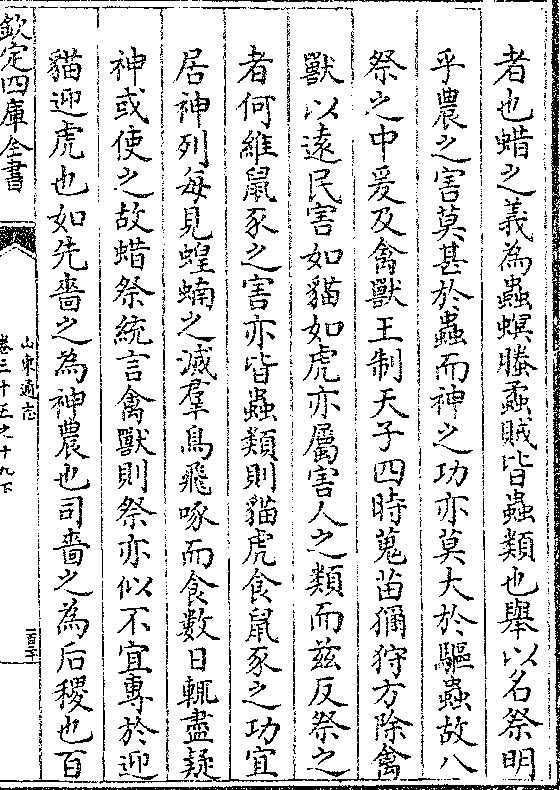 者也蜡之義為蟲螟螣蟊賊皆蟲類也舉以名祭明
乎農之害莫甚於蟲而神之功亦莫大於驅蟲故八
祭之中爰及禽獸王制天子四時蒐苗獮狩方除禽
獸以遠民害如貓如虎亦屬害人之類而兹反祭之
者何維鼠豕之害亦皆蟲類則貓虎食鼠豕之功宜
居神列每見蝗蝻之滅羣鳥飛啄而食數日輒盡疑
神或使之故蜡祭統言禽獸則祭亦似不宜專於迎
貓迎虎也如先嗇之為神農也司嗇之為后稷也百
欽定四庫全書
山東通志
卷三十五之十九下